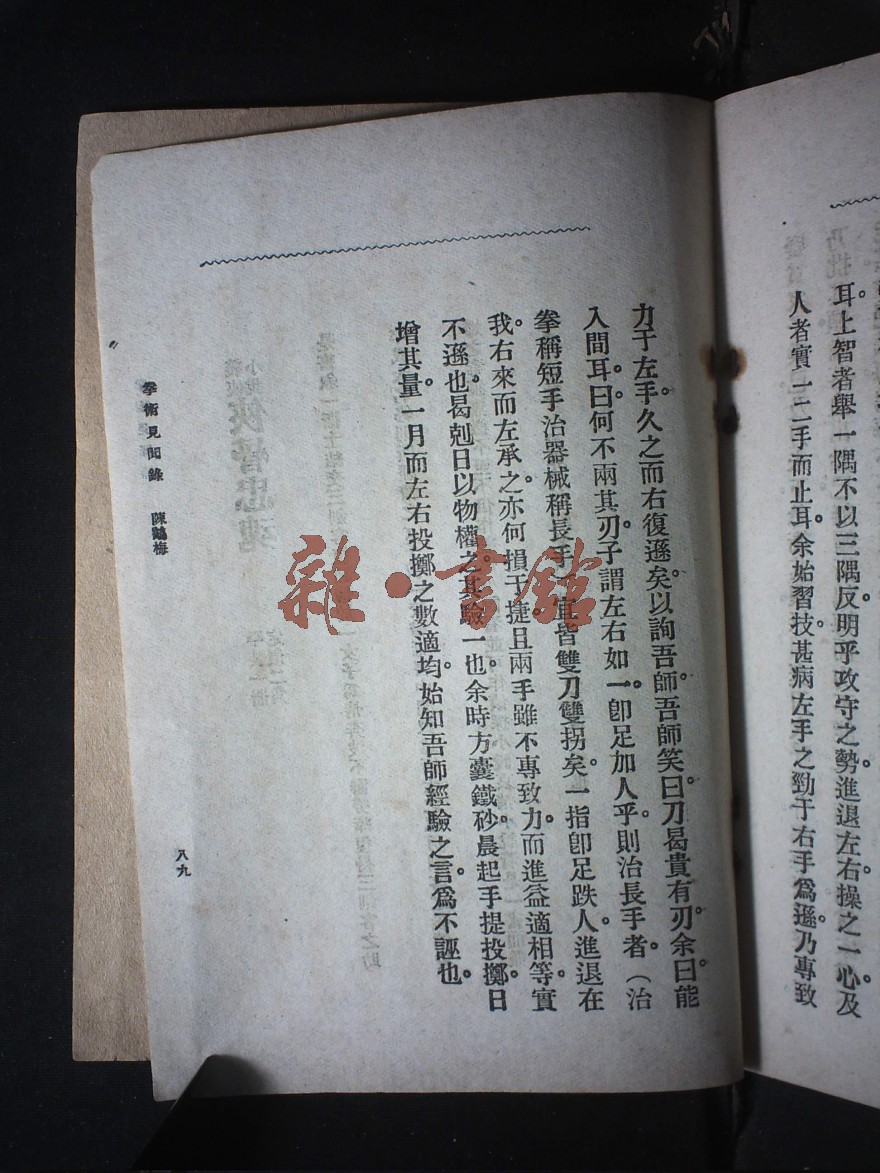 耳。上智者舉一隅不以三隅反。明乎攻守之勢。進退左右。操之一心。及
人者實一二手而止耳。余始習技。甚病左手之勁于右手爲遜。乃專致
力于左手。久之而右復遜矣。以詢吾師。吾師笑曰。刀曷貴有刃。余曰。能
入間耳。曰。何不兩其刃。子謂左右如一。卽足加人乎。則治長手者。(治
拳稱短手治器械稱長手)宜皆雙刀雙拐矣。一指卽足跌人。進退在
我。右來而左承之。亦何損于捷。且兩手雖不專致力。而進益適相等。實
不遜也。曷剋日以物權之。其驗一也。余時方囊鐵砂。晨起手提投擲。日
增其量。一月而左右投擲之數適均。始知吾師經驗之言。爲不誣也。
拳術見聞錄 陳鐵梅
八九
雜·書館